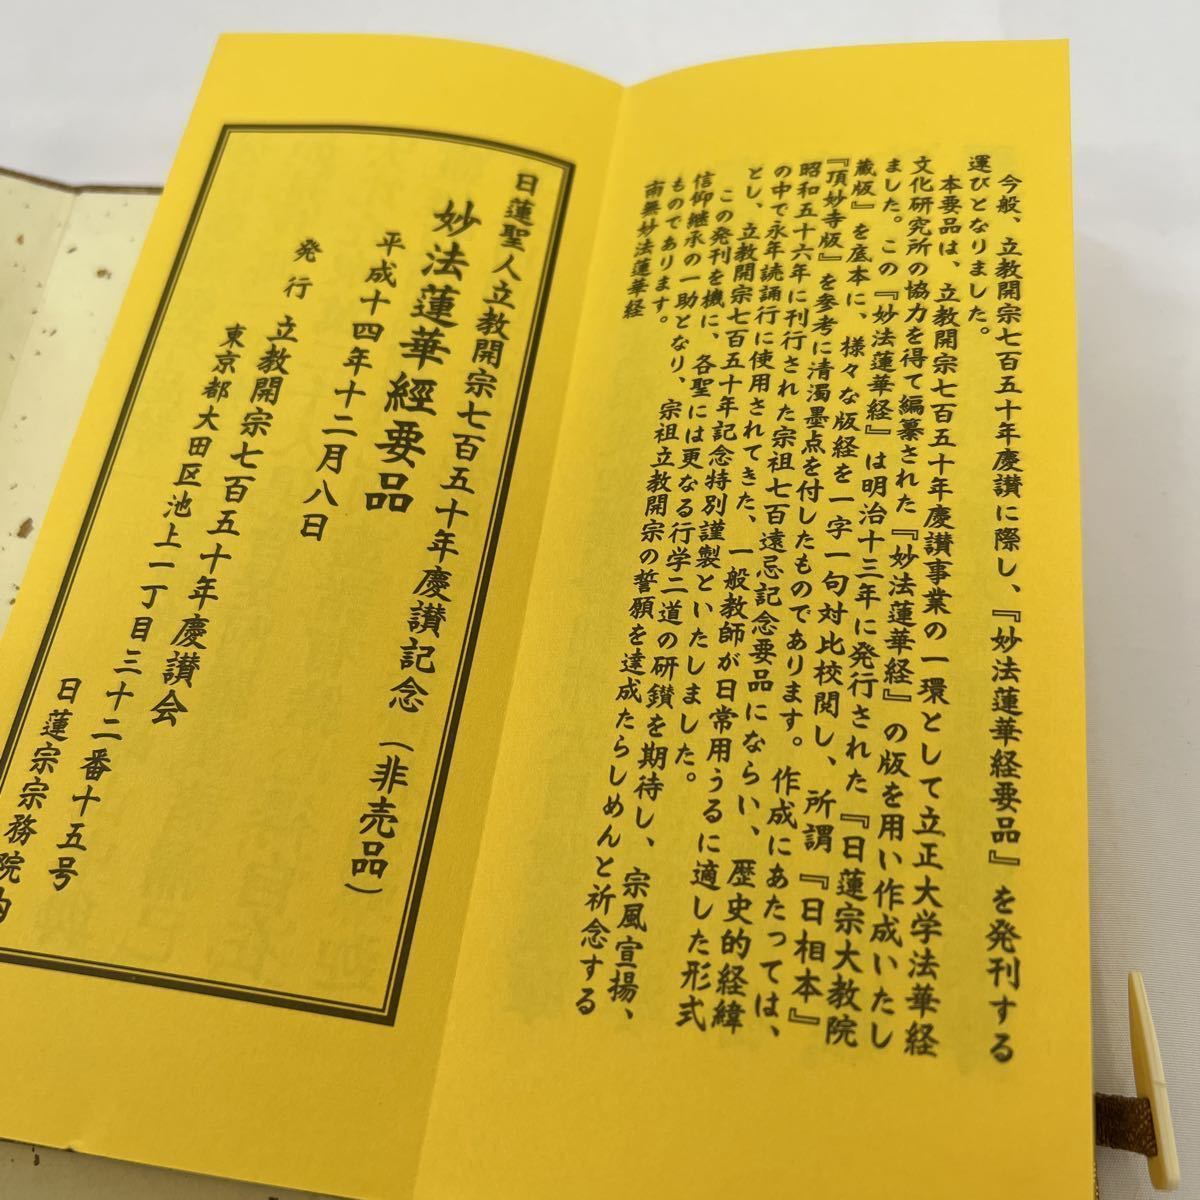 今般、立教開宗七百五十年慶讃に際し、『妙法蓮華経要品』を発刊する
運びとなりました。
本要品は、立教開宗七百五十年慶讃事業の一環として立正大学法華経
文化研究所の協力を得て編纂された『妙法蓮華経』の版を用い作成いたし
ました。この『妙法蓮華経』は明治十三年に発行された『日蓮宗大教院
蔵版』を底本に、様々な版経を一字一句対比校閲し、所謂『日相本』
『頂妙寺版』を参考に清濁墨点を付したものであります。作成にあたっては、
昭和五十六年に刊行された宗祖七百遠忌記念要品にならい、歴史的経緯
の中で永年読誦行に使用されてきた、一般教師が日常用うるに適した形式
とし、立教開宗七百五十年記念特別謹製といたしました。
この発刊を機に、各聖には更なる行学二道の研鑚を期待し、宗風宣揚、
信仰継承の一助となり、宗祖立教開宗の誓願を達成たらしめんと祈念する
ものであります。
南無妙法蓮華経
日蓮聖人立教開宗七百五十年慶讃記念(非売品)
妙法蓮華經要品
平成十四年十二月八日
発行 立教開宗七百五十年慶讃会
東京都大田区池上一丁目三十二番十五号
日蓮宗宗務院内